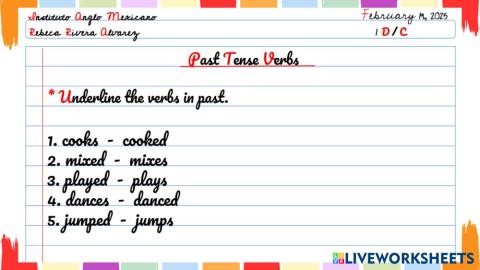 Instituto Anglo Mexicano
February 14, 2025
Rebeca Rivera Alvarez
1 D/C
Past Tense Verbs
* Underline the verbs in past.
1. cooks - cooked
2. mixed - mixes
3. played - plays
4. dances - danced
5. jumped - jumps
LIVEWORKSHEETS